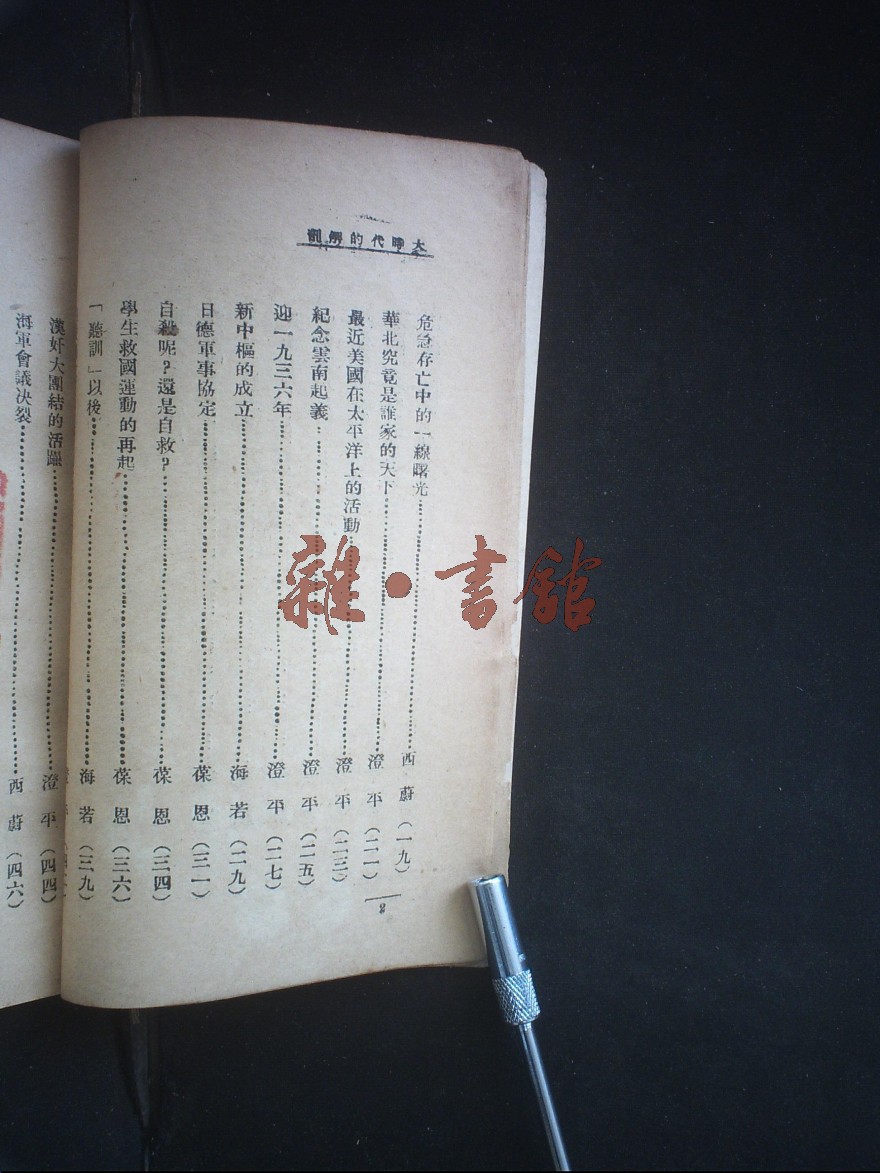 大時代的解剖
危急存亡中的一線曙光 西蔚（一九）
華北究竟是誰家的天下 澄平（二一）
最近美國在太平洋上的活動 澄平（二三）
紀念雲南起義 澄平（二五）
迎一九三六年 澄平（二七）
新中樞的成立 海若（二九）
日德軍事協定 葆恩（三一）
自殺呢？還是自救？ 葆恩（三四）
學生救國運動的再起 葆恩（三六）
「聽訓」以後 海若（三九）
漢奸大團結的活躍 澄平（四四）
海軍會議決裂 西蔚（四六）
2
雜·書館